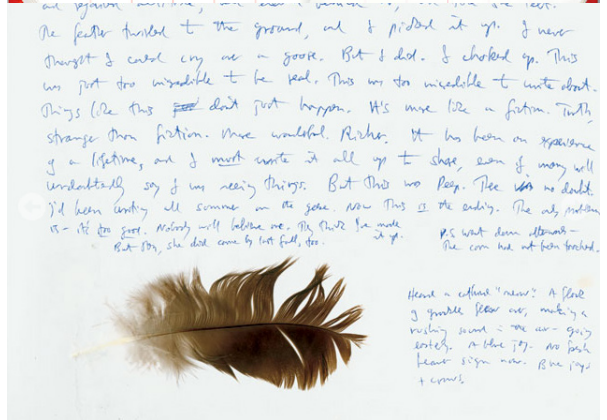 The feather twirled to the ground, and I picked it up. I never
thought I could cry over a goose. But I did. I choked up. This
was just too incredible to be real. This was too incredible to write about.
Things like this don't just happen. It's more like a fiction. Truth,
stranger than fiction. More wonderful. Richer. It has been an experience
of a lifetime, and I must write it all up to share, even if many will
undoubtedly say I was seeing things. But this was Peep. There was no doubt.
I'd been writing all summer on the geese. Now this is the ending. The only problem
is - it's too good. Nobody will believe me. They think I've made
it up.
But Boy, she did come by last fall, too.
P.S. went down afterwards -
The corn had not been touched.
Heard a catbird "meow"! A flock
of grackles flew over, making a
rushing sound in the air - going
easterly. A blue jay. No fresh
beaver sign now. Blue jays
+ crows!